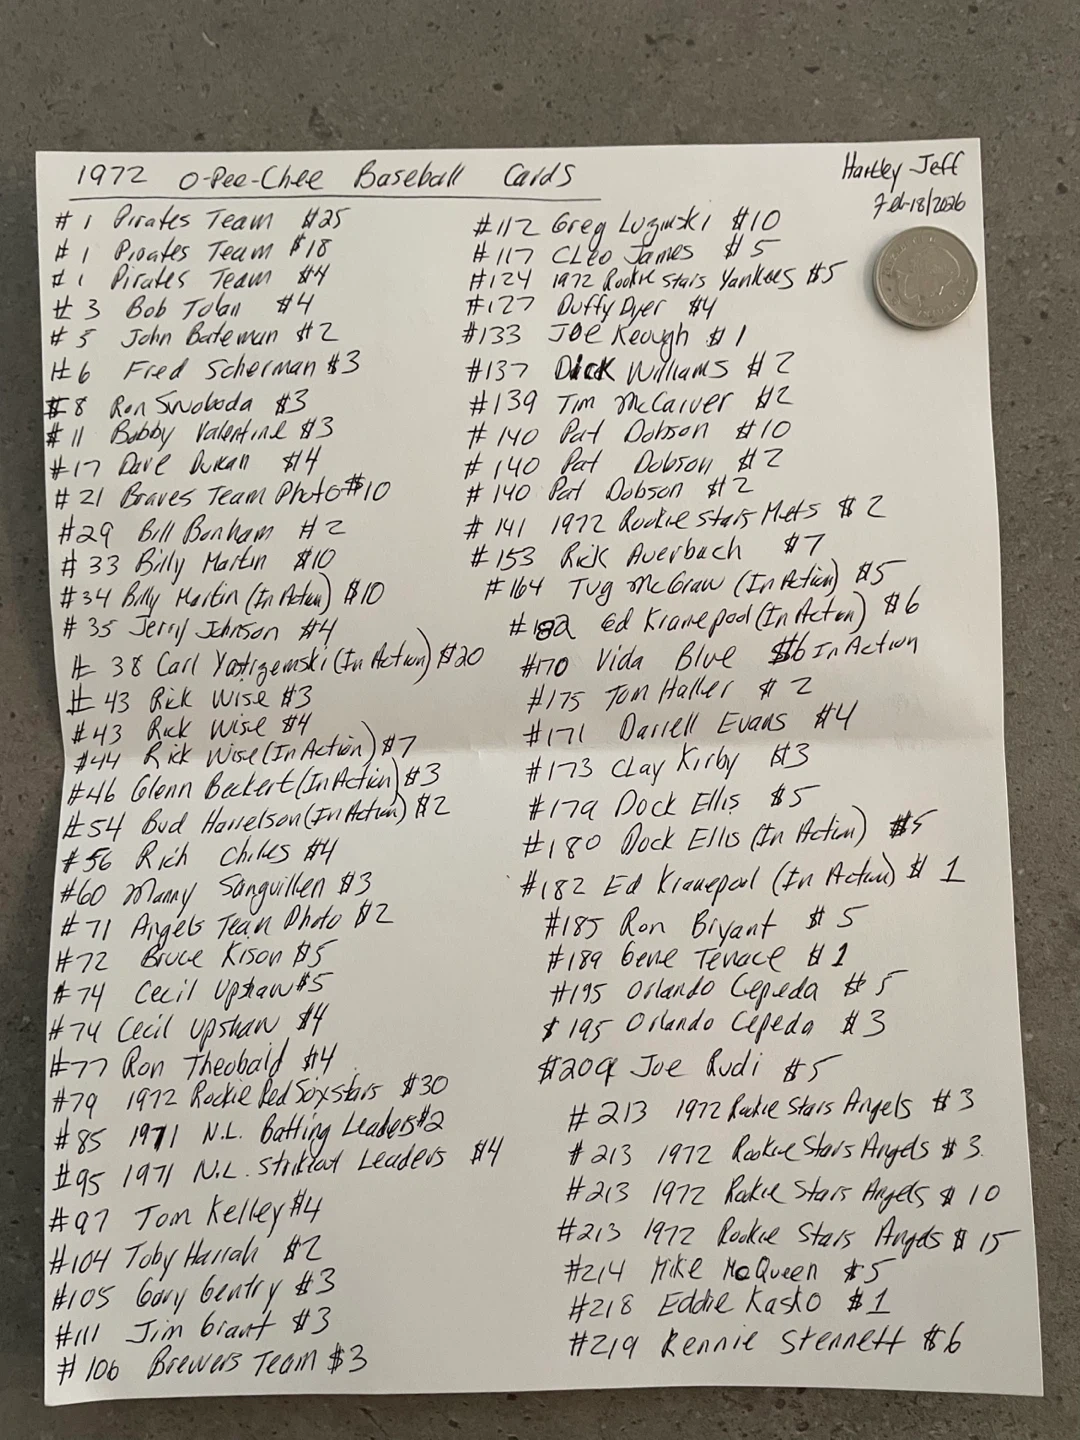 1972 O-Pee-Chee Baseball Cards
Hartley Jeff
Feb-18/2026
# 1 Pirates Team $25
# 1 Pirates Team $18
# 1 Pirates Team $4
# 3 Bob Tolan $4
# 5 John Bateman $2
# 6 Fred Scherman $3
# 8 Ron Swoboda $3
# 11 Bobby Valentine $3
#17 Dave Duncan $4
# 21 Braves Team Photo $10
#29 Bill Bonham $2
# 33 Billy Martin $10
#34 Billy Martin (In Action) $10
# 35 Jerry Johnson $4
# 38 Carl Yastrzemski (In Action) $20
# 43 Rick Wise $3
#43 Rick Wise $4
#44 Rick Wise (In Action) $7
#46 Glenn Beckert (In Action) $3
#54 Bud Harrelson (In Action) $2
#56 Rich Chiles $4
#60 Manny Sanguillen $3
# 71 Angels Team Photo $2
#72 Bruce Kison $5
#74 Cecil Upshaw $5
#74 Cecil Upshaw $4
#77 Ron Theobald $4
#79 1972 Rookie Red Sox stars $30
#85 1971 N.L. Batting Leaders $2
#95 1971 N.L. Strikeout Leaders $4
#97 Tom Kelley $4
#104 Toby Harrah $2
#105 Gary Gentry $3
#111 Jim Grant $3
# 106 Brewers Team $3
#112 Greg Luzinski $10
#117 Cleo James $5
#124 1972 Rookie Stars Yankees $5
#127 Duffy Dyer $4
#133 Joe Keough $1
#137 Dick Williams $2
#139 Tim McCarver $2
# 140 Pat Dobson $10
# 140 Pat Dobson $2
# 140 Pat Dobson $2
# 141 1972 Rookie Stars Mets $2
# 153 Rick Auerbach $7
#164 Tug McGraw (In Action) $5
#182 Ed Kranepool (In Action) $6
#170 Vida Blue $6 In Action
#175 Tom Haller $2
#171 Darrell Evans $4
#173 Clay Kirby $3
#179 Dock Ellis $5
#180 Dock Ellis (In Action) $5
#182 Ed Kranepool (In Action) $1
#185 Ron Bryant $5
#189 Gene Tenace $1
#195 Orlando Cepeda $5
$195 Orlando Cepeda $3
$209 Joe Rudi $5
# 213 1972 Rookie Stars Angels $3
# 213 1972 Rookie Stars Angels $3
#213 1972 Rookie Stars Angels $10
#213 1972 Rookie Stars Angels $15
#214 Mike McQueen $5
#218 Eddie Kasko $1
#219 Rennie Stennett $6